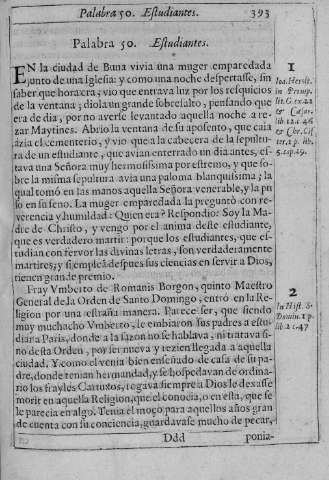 Palabra 50. Estudiantes. 393
Palabra 50. Estudiantes.
EN la ciudad de Buna vivia vna muger emparedada
junto de vna Iglesia: y como vna noche despertasse, sin
saber que hora era; vio que entrava luz por los resquicios
de la ventana; diola vn grande sobresalto, pensando que
era de dia, por no averse levantado aquella noche a re-
zar Maytines. Abrio la ventana de su aposento, que caia
àzia el cementerio, y vio que a la cabecera de la sepultu-
ra de vn estudiante, que avian enterrado vn dia antes, es-
tava vna Señora muy hermosissima por estremo, y que so-
bre la misma sepultura avia vna paloma blanquissima; la
qual tomò en las manos aquella Señora venerable, y la pu
so en su seno. La muger emparedada la preguntò con re-
verencia y humildad: Quien era? Respondio: Soy la Ma-
dre de Christo, y vengo por el anima deste estudiante,
que es verdadero martir: porque los estudiantes, que es-
tudian con fervor las divinas letras, son verdaderamente
martires; y si emplea despues sus ciencias en servir a Dios,
tienen grande premio.
Fray Vmberto de Romanis Borgon, quinto Maestro
General de la Orden de Santo Domingo, entrò en la Re-
ligion por vna estraña manera. Parece ser, que siendo
muy muchacho Vmberto, le embiaron sus padres a estu-
diar a Paris, donde a la sazon no se hablava, ni tratava si-
no desta Orden, por ser nueva y rezien llegada a aquella
ciudad. Y como el venia bien enseñado de casa de su pa-
dre, donde tenian hermandad, y se hospedavan de ordina-
rio los frayles Cartuxos, rogava siempre a Dios le dexasse
morir en aquella Religion, que el conocia, o en esta, que se
le parecia en algo. Tenia el moço para aquellos años gran
de cuenta con su conciencia, guardavase mucho de pecar,
Ddd ponia-
1
Ioa. Herolt.
in Promp.
lit. G. ex. 22
& Cæsar.
lib. 12. c. 46
5. cap. 49.
2
In Hist. S.
Domin. 2 p.
lib. 2 c. 47